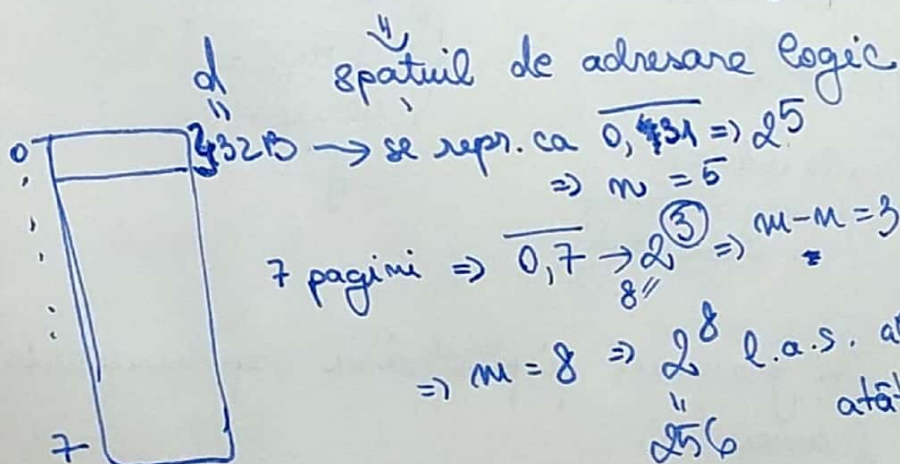 spațiul de adresare logic
d
"
0 32B → se repr. ca 0,31 ⇒ 2^5
⇒ n = 5
7 pagini ⇒ 0,7 → 2^3 ⇒ m-n = 3
8 "
⇒ m = 8 ⇒ 2^8 l.a.s.
"
256
7